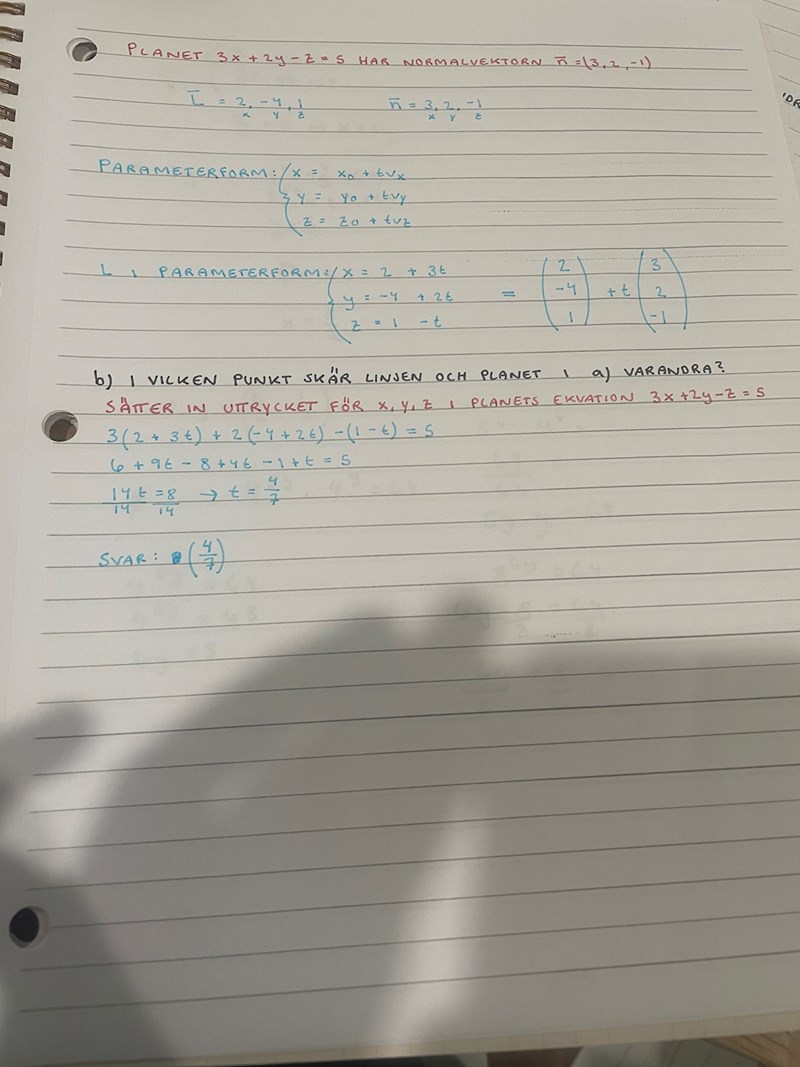 PLANET 3x+2y-z=5 HAR NORMALVEKTORN n̄=(3,2,-1)
L̄ = 2, -4, 1 n̄ = 3, 2, -1
x y z x y z
PARAMETERFORM: { x = x0 + tvx
y = y0 + tvy
z = z0 + tvz
L I PARAMETERFORM: { x = 2 + 3t
y = -4 + 2t
z = 1 - t
= (2 -4 1) + t (3 2 -1)
b) I VILKEN PUNKT SKÄR LINJEN OCH PLANET I a) VARANDRA?
SÄTTER IN UTTRYCKET FÖR x, y, z I PLANETS EKVATION 3x+2y-z=5
3(2+3t) + 2(-4+2t) -(1-t) = 5
6 + 9t - 8 + 4t - 1 + t = 5
14t/14 = 8/14 → t = 4/7
SVAR: (4/7)